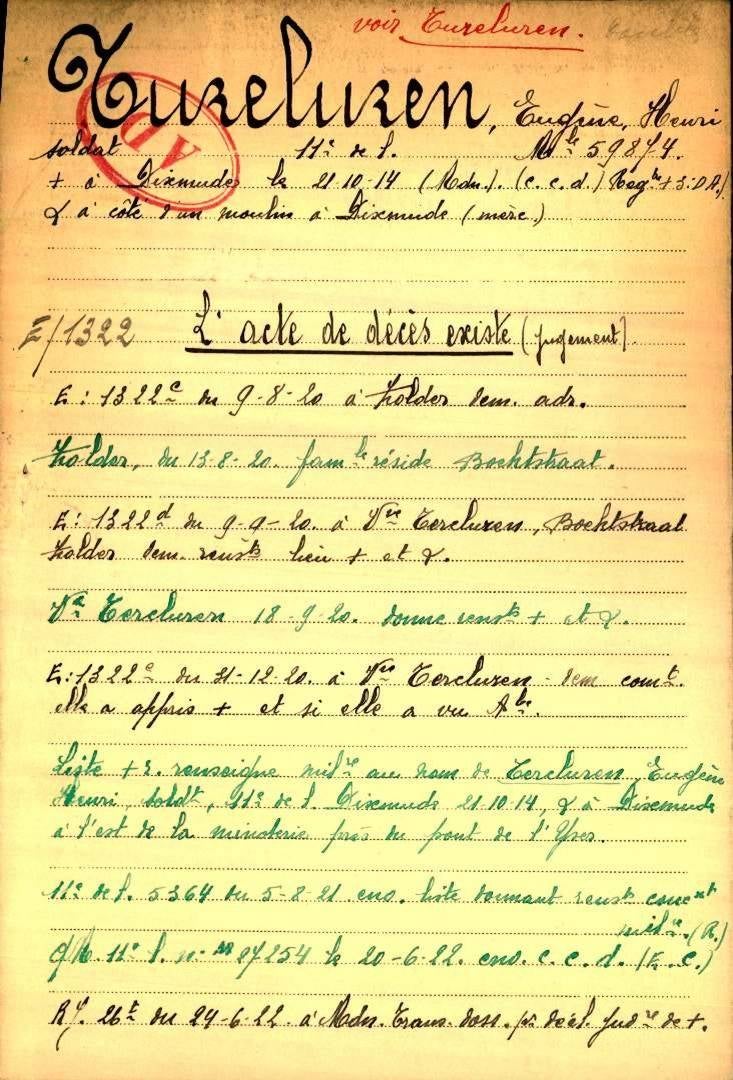 voir Tureluren.
Tureluren, Eugène, Henri
AD
soldat 11e de l. Mle 59874.
+ à Dixmude le 21-10-14 (Mdn.). (c. c. d.) Reg.
& à côté d'un moulin à Dixmude (mère.)
E/1322 L'acte de décès existe (jugement).
E: 1322c du 9-8-20 à Zolder dem. adr.
Zolder, du 13-8-20. famle réside Bochtstraat.
E: 1322d du 9-9-20. à Vve Tercluren, Bochtstraat
Zolder dem. rensts lieu + et &.
Ve Tercluren 18-9-20. donne rensts + et &.
E: 1322e du 31-12-20. à Vve Tercluren - dem comt.
elle a appris + et si elle a vu
Liste + 2. renseigne milre au nom de Tercluren, Eugène
Henri, soldt, 11e de l. Dixmude 21-10-14, & à Dixmude
à l'est de la minoterie près du pont de l'Yser.
11e de l. 5364 du 5-8-21 env. liste donnant rensts
milre. (R.)
11e l. no 27254 le 20-6-22. env. c. c. d. (E. C.)
26 du 24-6-22. à Mdn. Trans. doss. pr décl. judre de +.